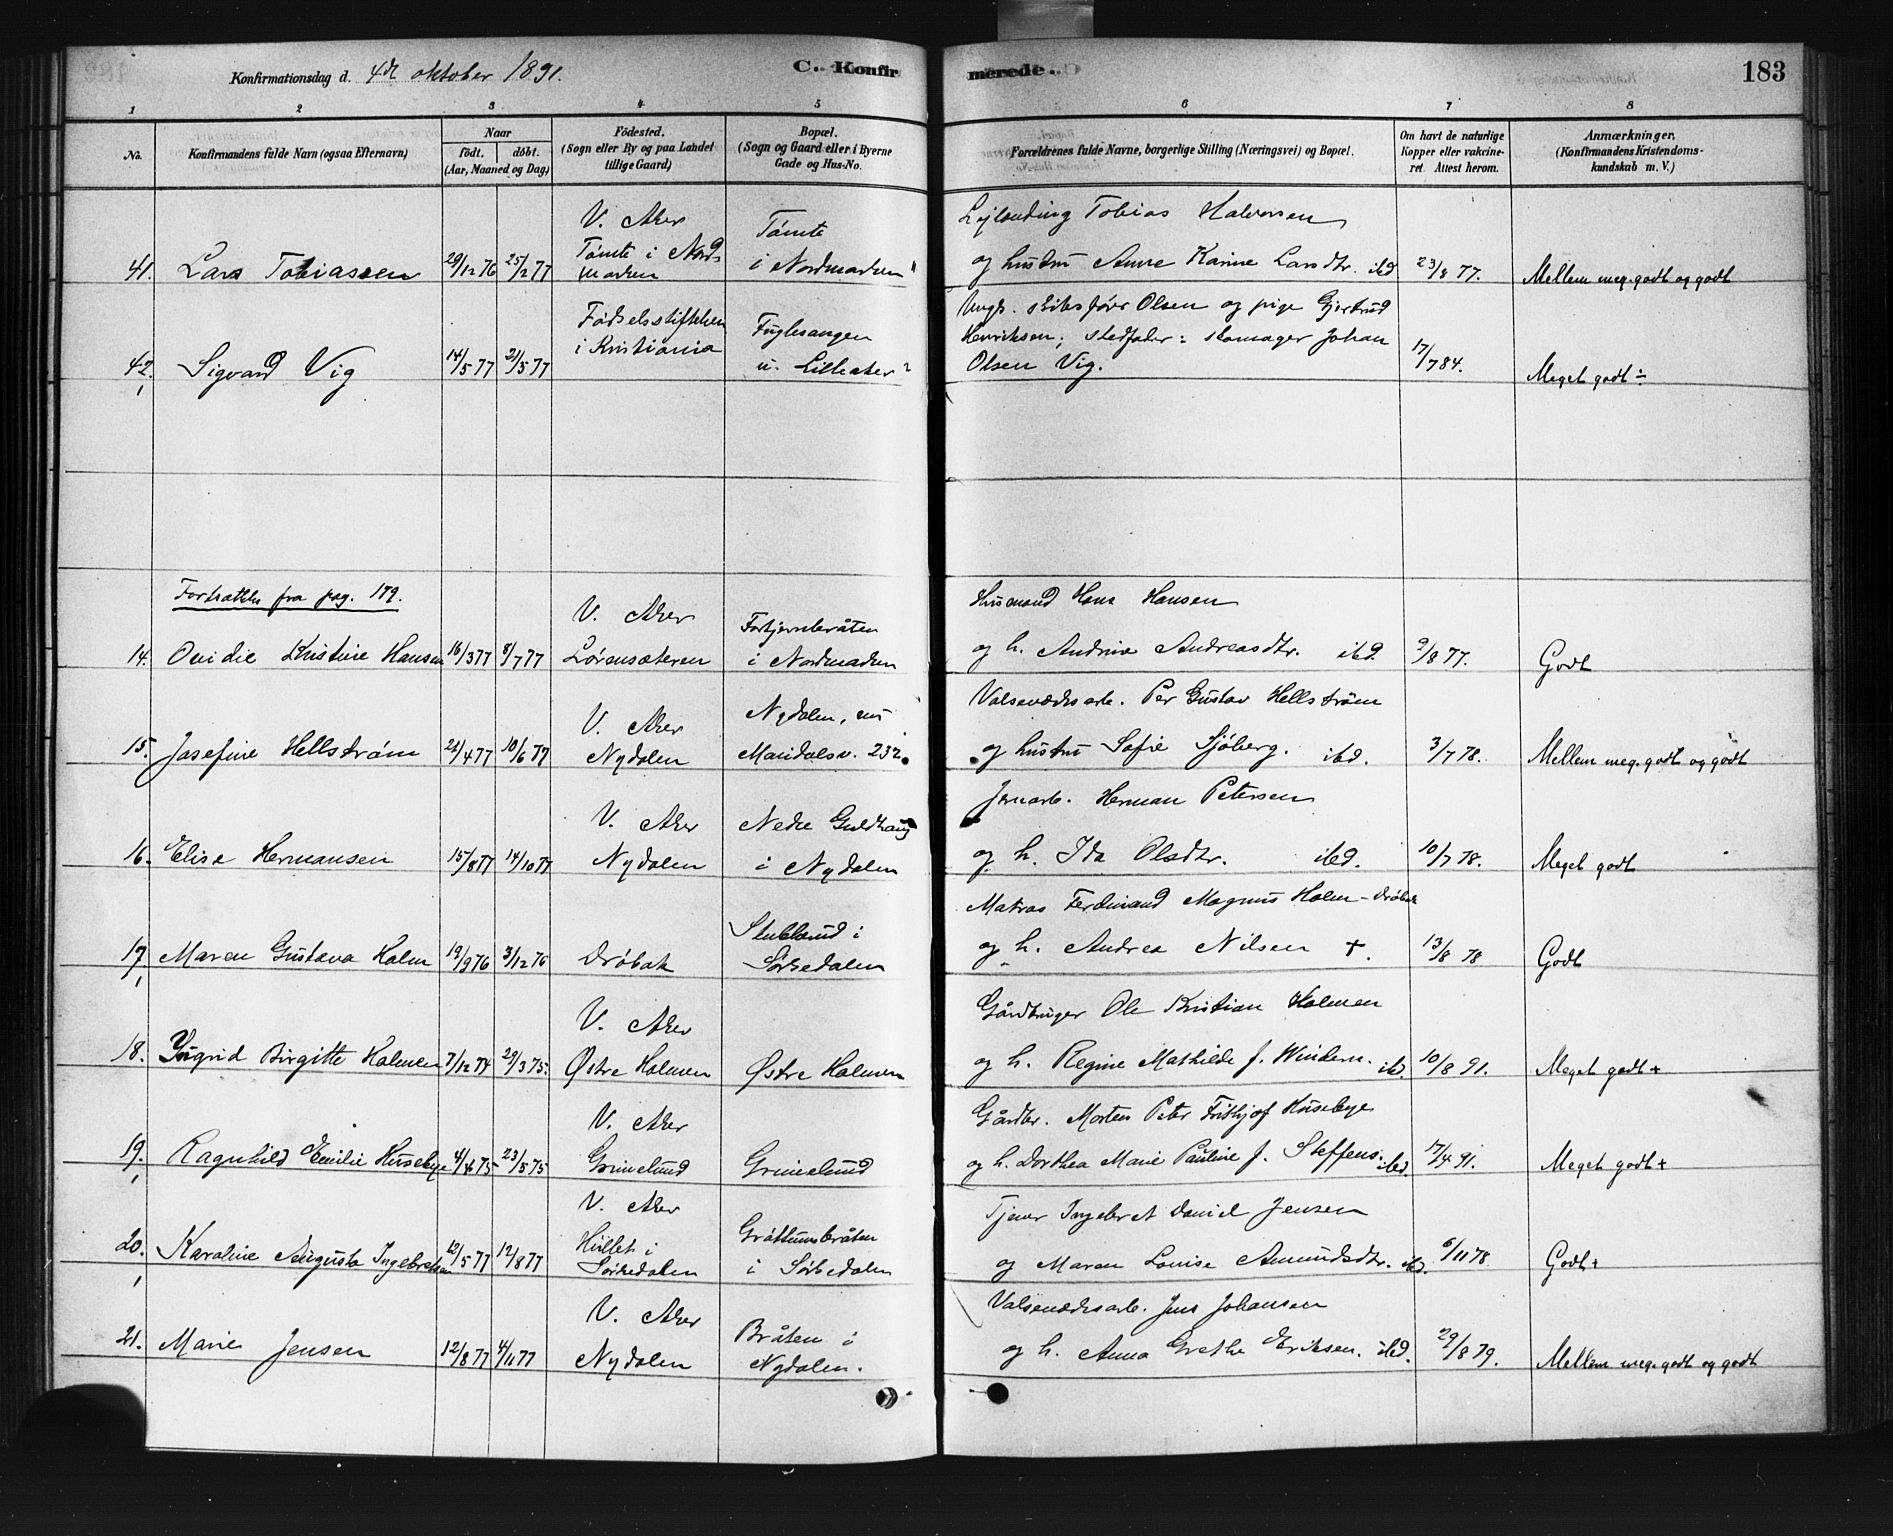 Konfirmationsdag d. 4de oktober 1891.
C. Konfirmerede.
183
1 2 3 4 5 6 7 8
No.
Konfirmandens fulde Navn (ogsaa Efternavn)
Naar
födt. döbt.
(Aar, Maaned og Dag)
Födested.
(Sogn eller By og paa Landet
tillige Gaard)
Bopæl.
(Sogn og Gaard eller i Byerne
Gade og Hus-No.
Forældrenes fulde Navne, borgerlige Stilling (Næringsvei) og Bopæl.
Om havt de naturlige
Kopper eller vakcine-
ret. Attest herom.
Anmærkninger.
(Konfirmandens Kristendoms-
kundskab m. V.)
41. Lars Tobiassen 29/12 76 25/2 77
V. Aker
Tömte i Nord-
marken
Tömte
i Nordmarken
Lejlending Tobias Halvorsen
og hustru Anne Karine Larsdtr. ibd.
23/8 77.
Mellem meg. godt og godt
42. Sigvard Vig 14/5 77 21/5 77
Födselsstiftelsen
i Kristiania
Fuglesangen
u. Lilleaker
Ungk. Olsen og pige Gjertrud
Henriksen; stedfader: skomager Johan
Olsen Vig.
17/7 84.
Meget godt ÷
Fortsættelse fra pag. 179.
14. Ovidie Kristine Hansen 16/3 77 8/7 77
V. Aker
Lörensæteren
i Nordmarken
Husmand Hans Hansen
og h. Andrine Andreasdtr. ibd.
9/8 77.
Godt
15. Josefine Hellström 21/4 77 10/6 77
V. Aker
Nydalen
Nydalen, nu
Maridalsv. 232.
Valseværksarb. Per Gustav Hellström
og hustru Sofie Sjöberg. ibd.
3/7 78.
Mellem meg. godt og godt
16. Elise Hermansen 15/8 77 14/10 77
V. Aker
Nydalen
Nedre Guldhaug
i Nydalen
Jernarb. Herman Petersen
og h. Ida Olsdtr. ibd.
10/7 78.
Meget godt
17. Maren Gustava Holm 19/9 76 3/12 76
Dröbak
Stubberud i
Sörkedalen
Matros Ferdinand Magnus Holm - Dröbak
og h. Andrea Nilsen +.
13/8 78
Godt
18. Yngrid Birgitte Holmen 7/12 74 29/3 75.
V. Aker
Østre Holmen
Østre Holmen
Gårdbruger Ole Kristian Holmen
og h. Regine Mathilde f. Windern. ibd.
10/8 91.
Meget godt +
19. Ragnhild Emilie Husebye 4/4 75 23/5 75
V. Aker
Grimelund
Grimelund
Gårdbr. Morten Peter Frithjof Husebye
og h. Dorthea Marie Pauline f. Steffens. ibd.
17/4 91.
Meget godt +
20. Karoline Augusta Ingebretsen 12/5 77 12/8 77
V. Aker
Hullet i
Sörkedalen
Gröttumsbråten
i Sörkedalen
Tjener Ingebret Daniel Jensen
og Maren Louise Amundsdtr. ibd.
6/11 78
Godt +
21. Marie Jensen 12/8 77 4/11 77
V. Aker
Nydalen
Bråten i
Nydalen.
Valseværksarb. Jens Johansen
og h. Anna Grethe Eriksen. ibd.
29/8 79.
Mellem meg. godt og godt